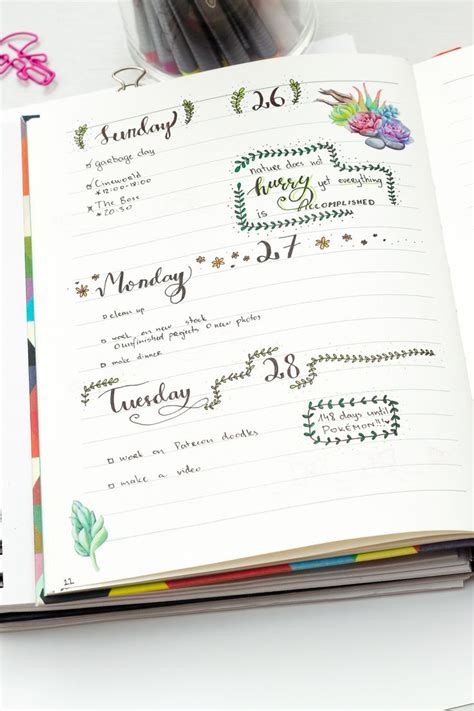 Sunday 26
garbage day
Cineworld
*12:00-18:00
The Boss
*20:30
nature does not
hurry yet everything
is ACCOMPLISHED
27
Monday
clean up
work on new stock
unfinished projects new photos
make dinner
28
Tuesday
148 days until
POKÉMON!!!
work on Patreon doodles
make a video
22